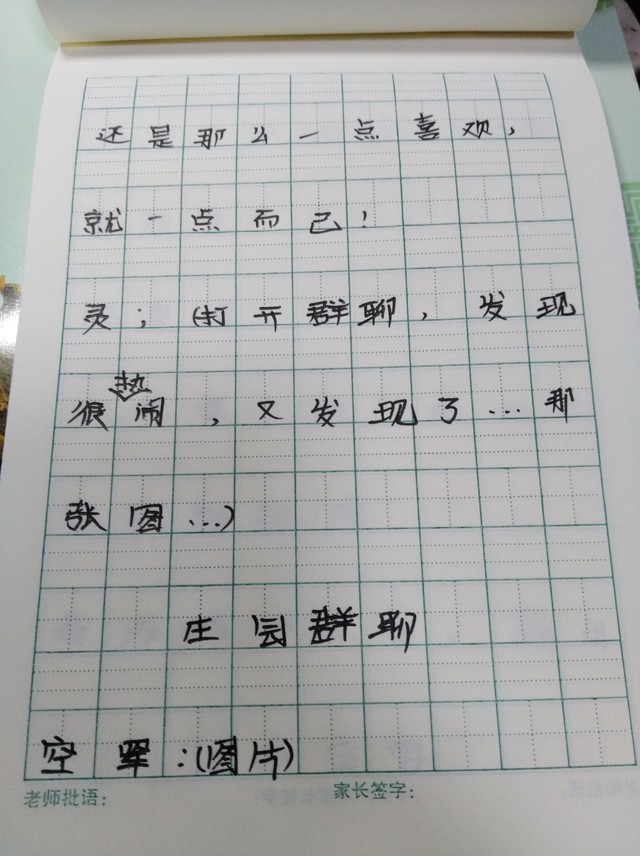 还是那么一点喜欢，
就一点而已！
灵；（打开群聊，发现
很热闹，又发现了…那
张图…）
庄园群聊
空军：（图片）
老师批语： 家长签字：